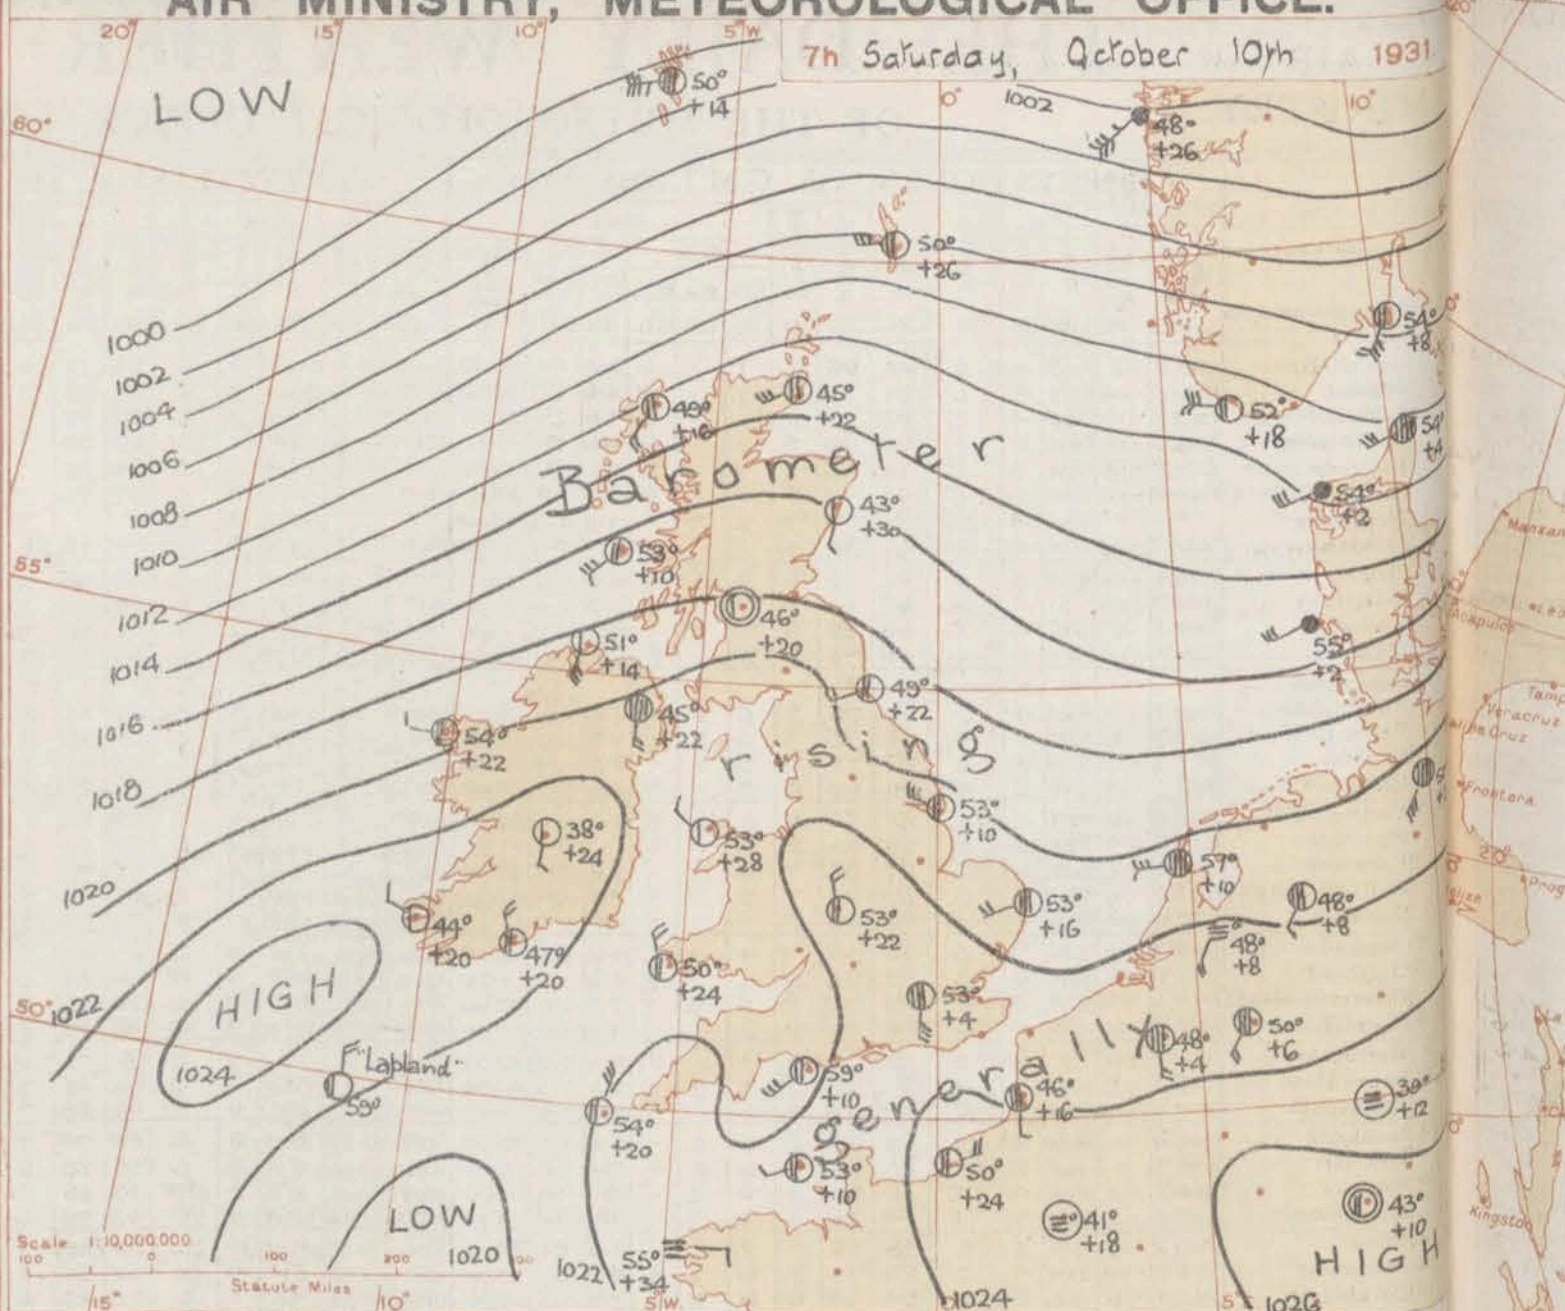 AIR MINISTRY, METEOROLOGICAL OFFICE.
7h Saturday, October 10th 1931.
20° 15° 10° 5°W 0° 5°E 10°
LOW
60°
50°
+14
1002
48°
+26
50°
+26
1000
1002
1004
1006
1008
1010
1012
1014
1016
1018
1020
1022
54°
+8
49°
+16
45°
+22
52°
+18
54°
+4
Barometer
43°
+30
54°
+2
55°
53°
+10
46°
+20
51°
+14
55°
+2
49°
+22
45°
+22
54°
+22
rising
53°
+10
38°
+24
53°
+28
57°
+10
53°
+22
53°
+16
48°
+8
48°
+8
44°
+20
47°
+20
50°
+24
53°
+4
50°
+6
48°
+4
50°
HIGH
1024
"Lapland"
59°
59°
+10
generally
46°
+16
39°
+12
54°
+20
53°
+10
50°
+24
41°
+18
43°
+10
HIGH
LOW
1020
1022
55°
+34
1024
1026
Scale 1:10,000,000
100 0 100 200
Statute Miles
15° 10° 5°W 5°
Manzan
Acapulco
Tamp
Veracruz
Cruz
Frontera
Prog
20°
Kingston